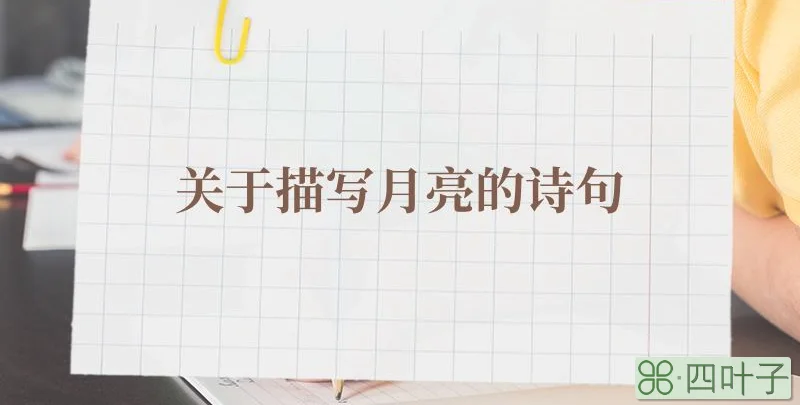 关于描写月亮的诗句
四叶子